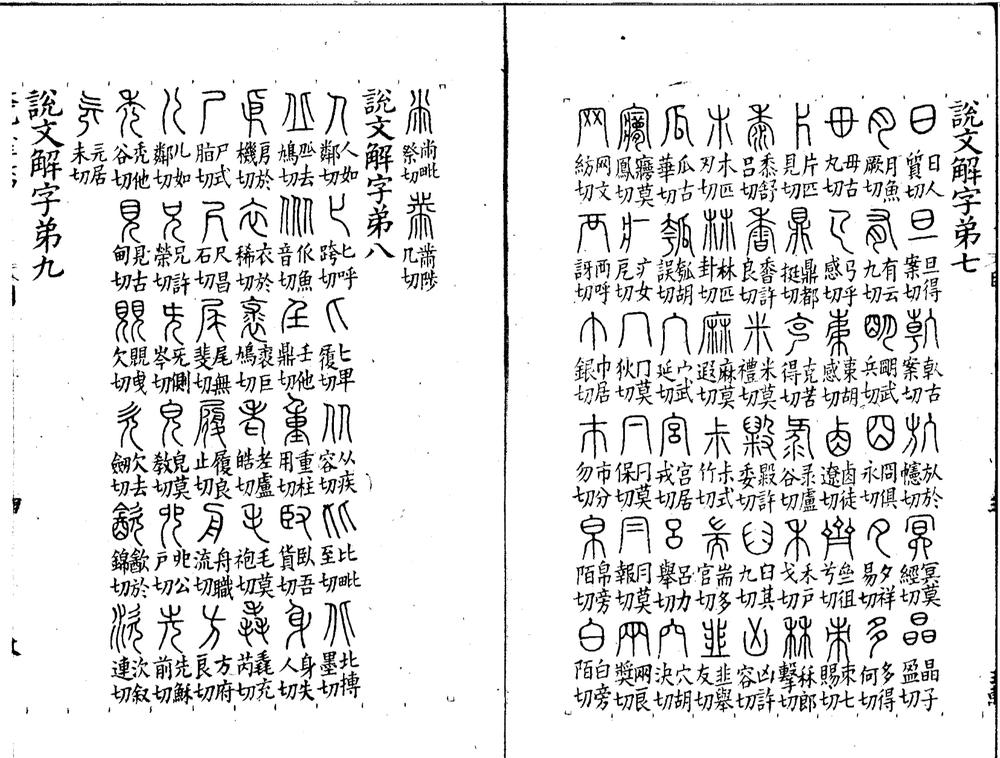 說文解字弟七
日日人質切 旦旦得案切 倝倝古案切 㫃㫃於幰切 冥冥莫經切 晶晶子盈切
月月魚厥切 有有云九切 朙朙武兵切 囧囧俱永切 夕夕祥易切 多多得何切
毌毌古丸切 𢎘𢎘乎感切 㯥㯥胡感切 卤卤徒遼切 齊亝徂兮切 朿朿七賜切
片片匹見切 鼎鼎都挺切 克克苦得切 彔彔盧谷切 禾禾戶戈切 秝秝郎擊切
黍黍舒呂切 香香許良切 米米莫禮切 毇毇許委切 臼臼其九切 凶凶許容切
朩朩匹刃切 𣏟𣏟匹卦切 麻麻莫遐切 尗尗式竹切 耑耑多官切 韭韭舉友切
瓜瓜古華切 瓠瓠胡誤切 宀宀武延切 宮宮居戎切 呂呂力舉切 穴穴胡決切
㝱㝱莫鳳切 疒疒女戹切 冖冖莫狄切 𠔼𠔼莫保切 冃冃莫報切 㒳㒳良獎切
网网文紡切 襾襾呼訝切 巾巾居銀切 巿巿分勿切 帛帛旁陌切 白白旁陌切
㡀㡀毗祭切 黹黹陟几切
說文解字弟八
人人如鄰切 𠤎𠤎呼跨切 匕匕卑履切 从从疾容切 比比毗至切 北北博墨切
丠丠去鳩切 㐺㐺魚音切 𡈼𡈼他鼎切 重重柱用切 臥臥吾貨切 身身失人切
㐆㐆於機切 衣衣於稀切 裘裘巨鳩切 老老盧皓切 毛毛莫袍切 毳毳充芮切
尸尸式脂切 尺尺昌石切 尾尾無斐切 履履良止切 舟舟職流切 方方府良切
儿儿如鄰切 兄兄許榮切 兂兂側岑切 皃皃莫教切 𠑹𠑹公戶切 先先穌前切
秃秃他谷切 見見古甸切 覞覞曳欠切 欠欠去劒切 㱃㱃於錦切 㳄㳄叙連切
旡旡居未切
說文解字弟九